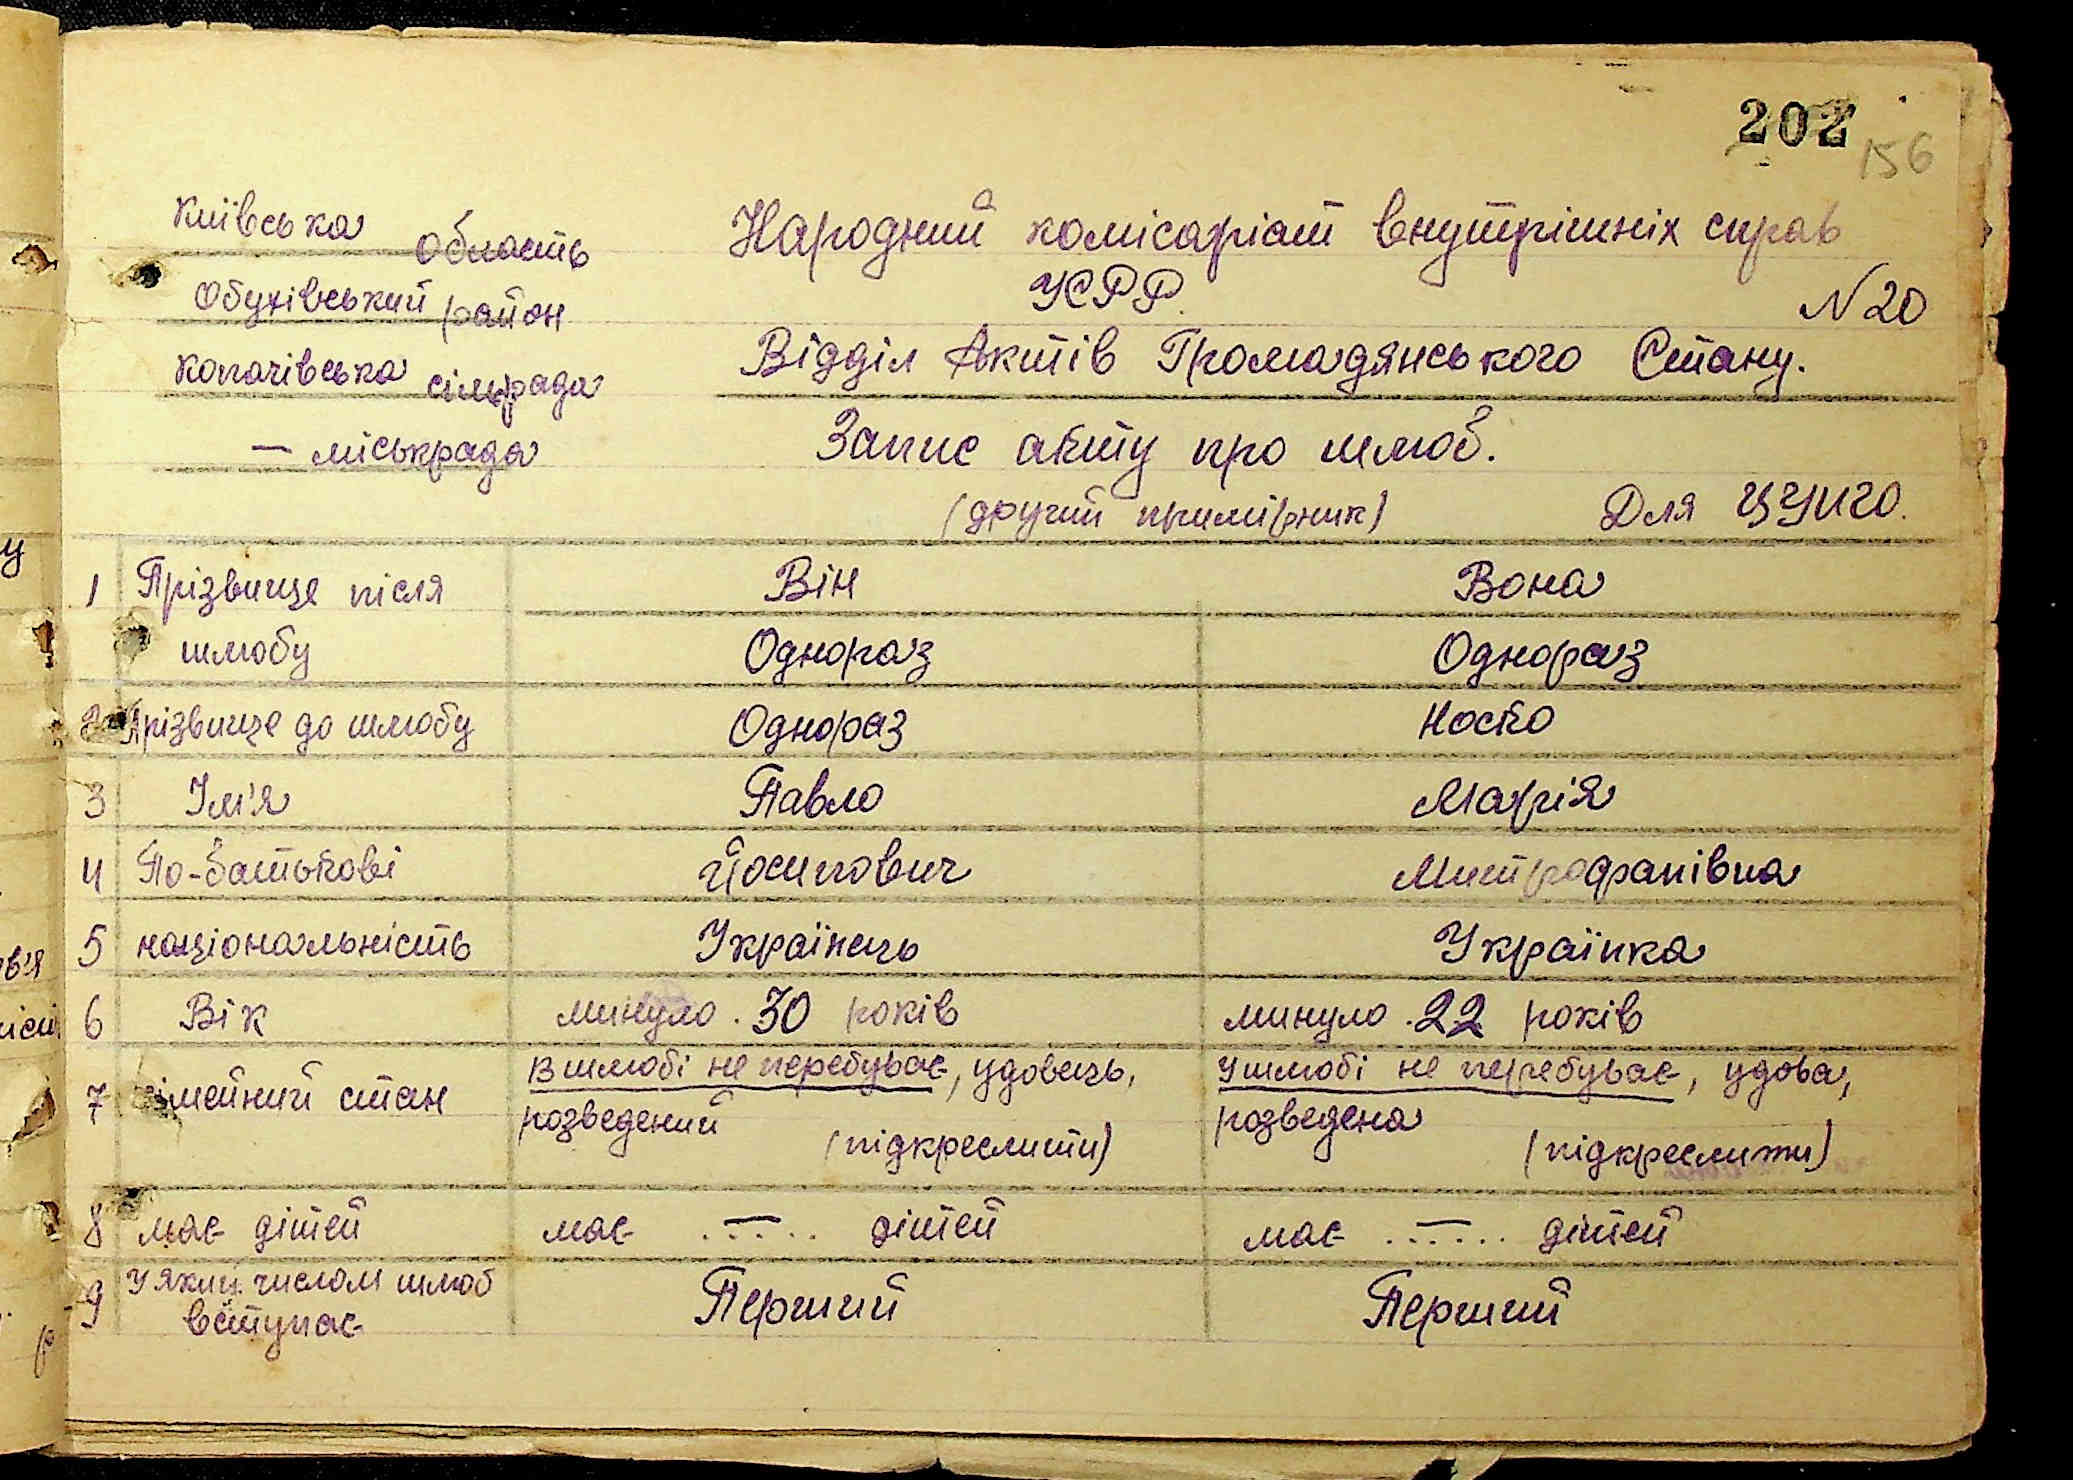 202
156
Київська область
Обухівський район
Копачівська сільрада
— міськрада
Народний комісаріат внутрішніх справ
УСРР.
N 20
Відділ Актів Громадянського Стану.
Запис акту про шлюб.
(другий примірник) Для ЦУНГО.
1 Прізвище після шлюбу Він Вона
Однораз Однораз
2 Прізвище до шлюбу Однораз Носко
3 Ім'я Павло Марія
4 По-батькові Йосипович Митрофанівна
5 національність Українець Українка
6 Вік минуло . 30 років минуло . 22 років
7 сімейний стан В шлюбі не перебуває, удовець, У шлюбі не перебуває, удова,
розведений розведена
(підкреслити) (підкреслити)
8 має дітей має ..—.. дітей має ..—... дітей
9 У який числом шлюб Перший Перший
вступає